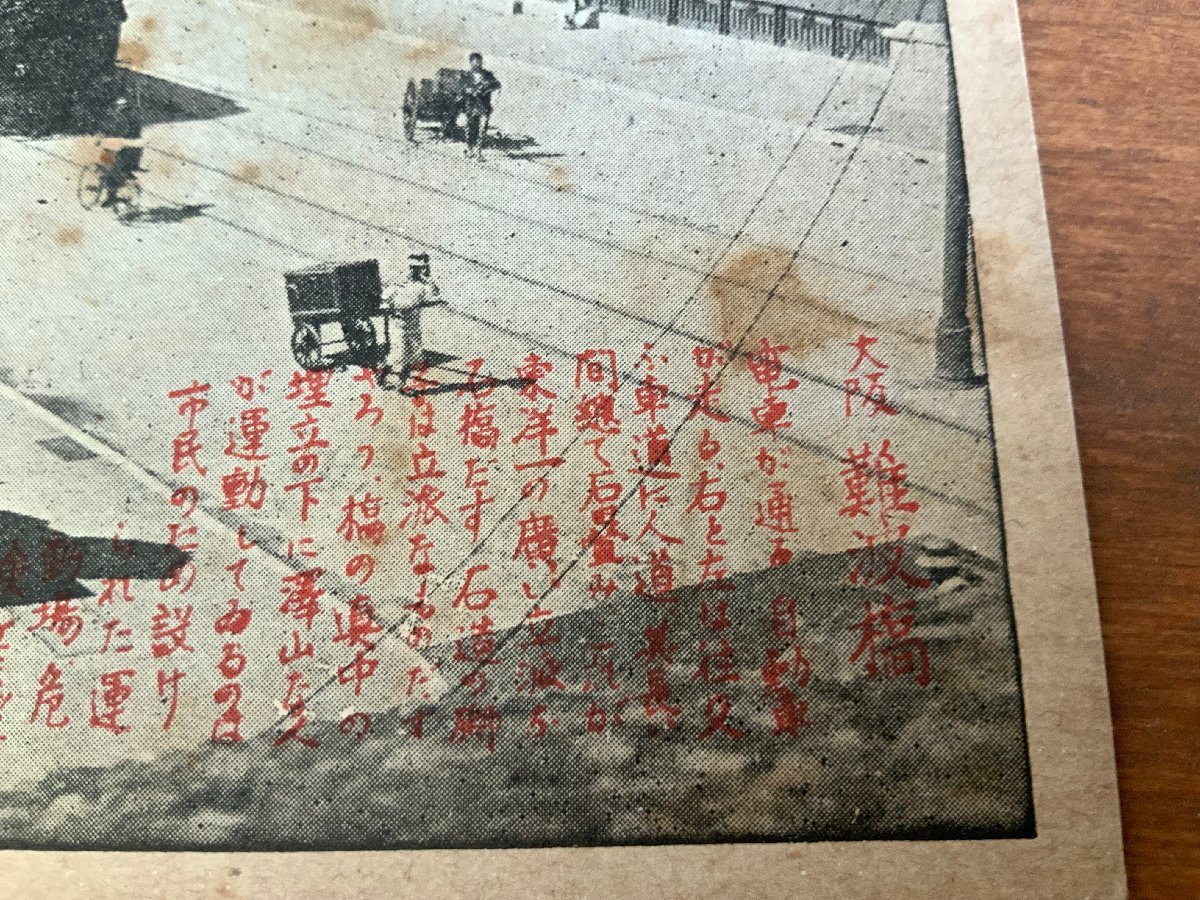 大阪 難波橋
電車が通る 自動車
が走る、右と左は
ふ車道に人道、
間總て石畳み これが
東洋一の廣い立派な
石橋たす 石造の獅
子は立派なものたす
さろっ、橋の真中の
埋立の下に澤山な人
が運動してゐるのは
市民のため設け
られた運
動場 危
険